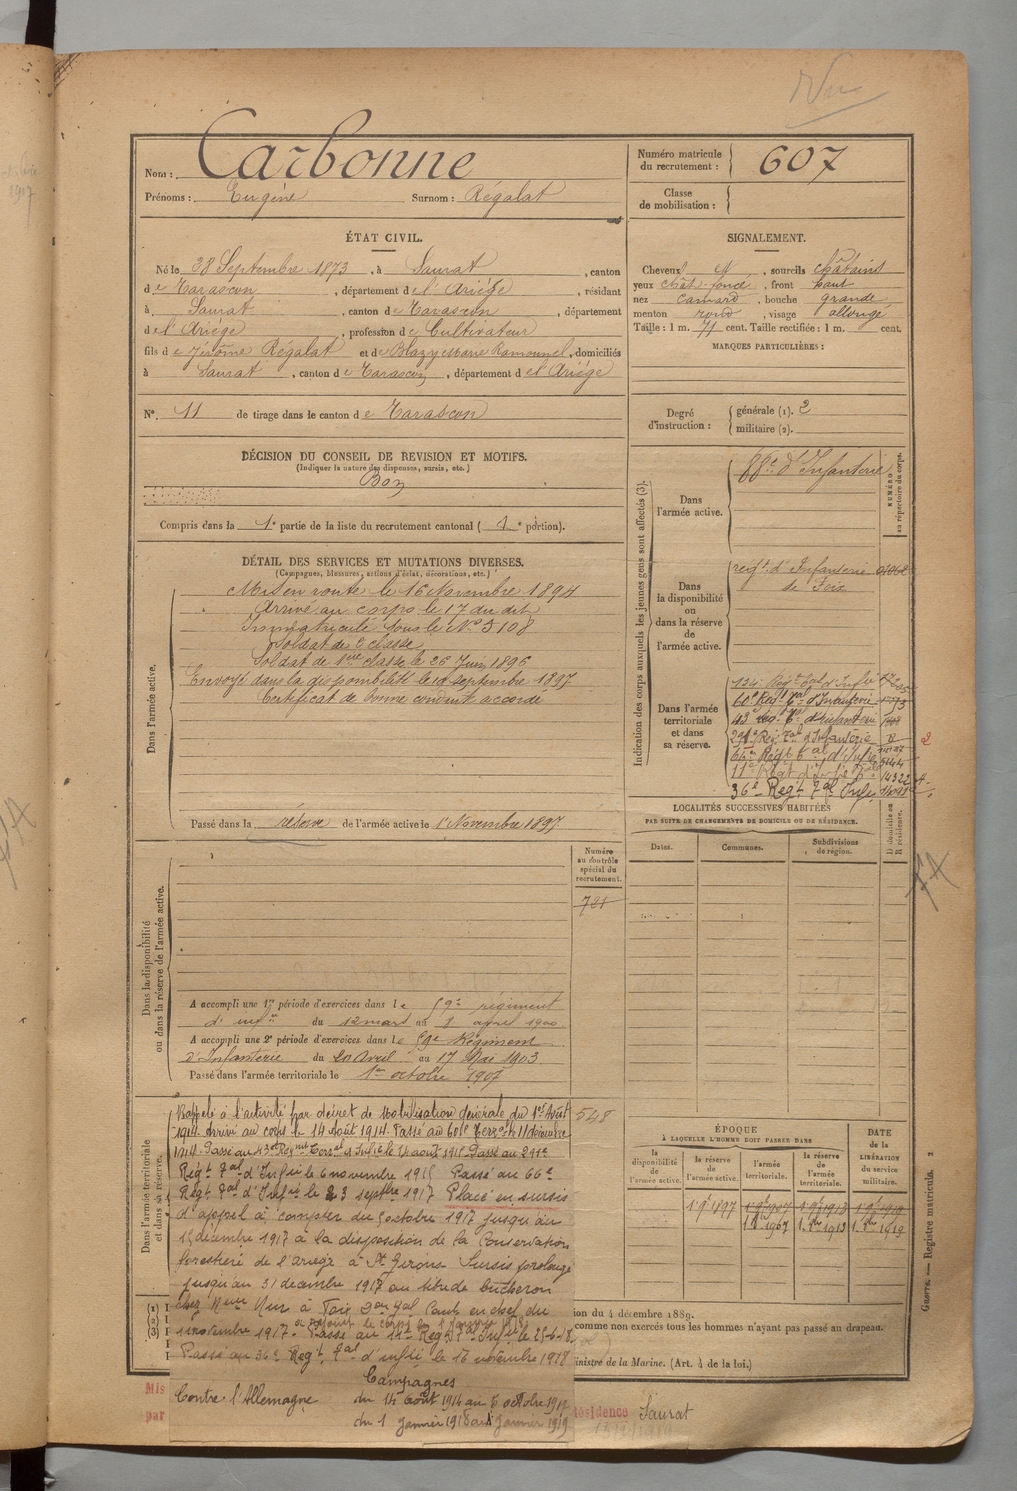 Nom : Carbonne
Prénoms : Eugène Surnom : Régalat
Numéro matricule du recrutement : 607
Classe de mobilisation :
ÉTAT CIVIL.
Né le 28 Septembre 1873, à Saurat, canton
de Tarascon, département de l'Ariége, résidant
à Saurat, canton de Tarascon, département
de l'Ariége, profession de Cultivateur
fils de Jérôme Régalat et de Blazy Marie Ramounel, domiciliés
à Saurat, canton de Tarascon, département de l'Ariége
N° 11 de tirage dans le canton de Tarascon
SIGNALEMENT.
Cheveux et, sourcils châtains
yeux chât. foncé, front haut
nez camard, bouche grande
menton rond, visage allongé
Taille : 1 m. 71 cent. Taille rectifiée : 1 m. cent.
MARQUES PARTICULIÈRES :
Degré d'instruction : générale (1). 2
militaire (2).
DÉCISION DU CONSEIL DE REVISION ET MOTIFS.
(Indiquer la nature des dispenses, sursis, etc.)
Bon
Compris dans la 1e partie de la liste du recrutement cantonal ( 1e portion).
DÉTAIL DES SERVICES ET MUTATIONS DIVERSES.
(Campagnes, blessures, actions d'éclat, décorations, etc.)
Dans l'armée active.
Mis en route le 16 Novembre 1894
Arrivé au corps le 17 du dit
Immatriculé sous le N° 5108
Soldat de 2 classe
Soldat de 1ere classe le 26 Juin 1896
Envoyé dans la disponibilité le septembre 1897
Certificat de bonne conduite accordé
Passé dans la réserve de l'armée active le 1 Novembre 1897
Indication des corps auxquels les jeunes gens sont affectés (3).
NUMÉRO au répertoire du corps.
Dans l'armée active.
88e d'Infanterie
Dans la disponibilité ou dans la réserve de l'armée active.
regt. d'Infanterie
de Foix
Dans l'armée territoriale et dans sa réserve.
134e Regt tal d'Infie
60e Regt Tal d'Infanterie
43e Reg. T. d'infanterie
291e Reg. Tal d'Infanterie
66e Regt Tal d'Infie
11e Regt d'Infie Tale 14322
36e Regt Tal Infie
LOCALITÉS SUCCESSIVES HABITÉES
PAR SUITE DE CHANGEMENTS DE DOMICILE OU DE RÉSIDENCE.
Dates. Communes. Subdivisions de région. D. domicile ou R. résidence.
Numéro au contrôle spécial du recrutement.
721
Dans la disponibilité ou dans la réserve de l'armée active.
A accompli une 1re période d'exercices dans le 59e régiment
d'infie du 12 mars au 8 avril 1900
A accompli une 2e période d'exercices dans le 59e Régiment
d'Infanterie du 20 Avril au 17 Mai 1903
Passé dans l'armée territoriale le 1er octobre 1907
Dans l'armée territoriale et dans sa réserve.
Rappelé à l'activité par décret de Mobilisation Générale du 1er Août
1914. Arrivé au corps le 14 Août 1914. Passé au 60e Terral le 11 décembre
1914. Passé au 43e Regmt Terral d'Infie le 14 août 1915 Passé au 291e
Regt Tal d'Infie le 6 novembre 1915 Passé au 66e
Regt Tal d'Infie le 23 septbre 1917 Placé en sursis
d'appel à compter du 5 octobre 1917 jusqu'au
15 décembre 1917 à la disposition de la Conservation
forestière de l'ariège à St Girons Sursis prolongé
jusqu'au 31 décembre 1917 au titre de bucheron
chez à Foix
11 novembre 1917. a rejoint le corps le 1 Janvier 1918
Passé au 11e Regt Tal Infie le 25-6-18.
Passé au 36e Regt Tal d'infie le 16 novembre 1918
Campagnes
Contre l'Allemagne du 14 août 1914 au 5 octobre 1917
du 1 Janvier 1918 au Janvier 1919
548
ÉPOQUE
À LAQUELLE L'HOMME DOIT PASSER DANS
la disponibilité de l'armée active. la réserve de l'armée active. l'armée territoriale. la réserve de l'armée territoriale.
DATE de la LIBÉRATION du service militaire.
1 9bre 1897 1 9bre 1907 1 9bre 1913 1 9bre 1919
1 8bre 1907 1. 8bre 1913 1. 8bre 1919
ion du 4 décembre 1889.
comme non exercés tous les hommes n'ayant pas passé au drapeau.
inistre de la Marine. (Art. 4 de la loi.)
Mis
par
résidence Saurat
Registre matricule. 2